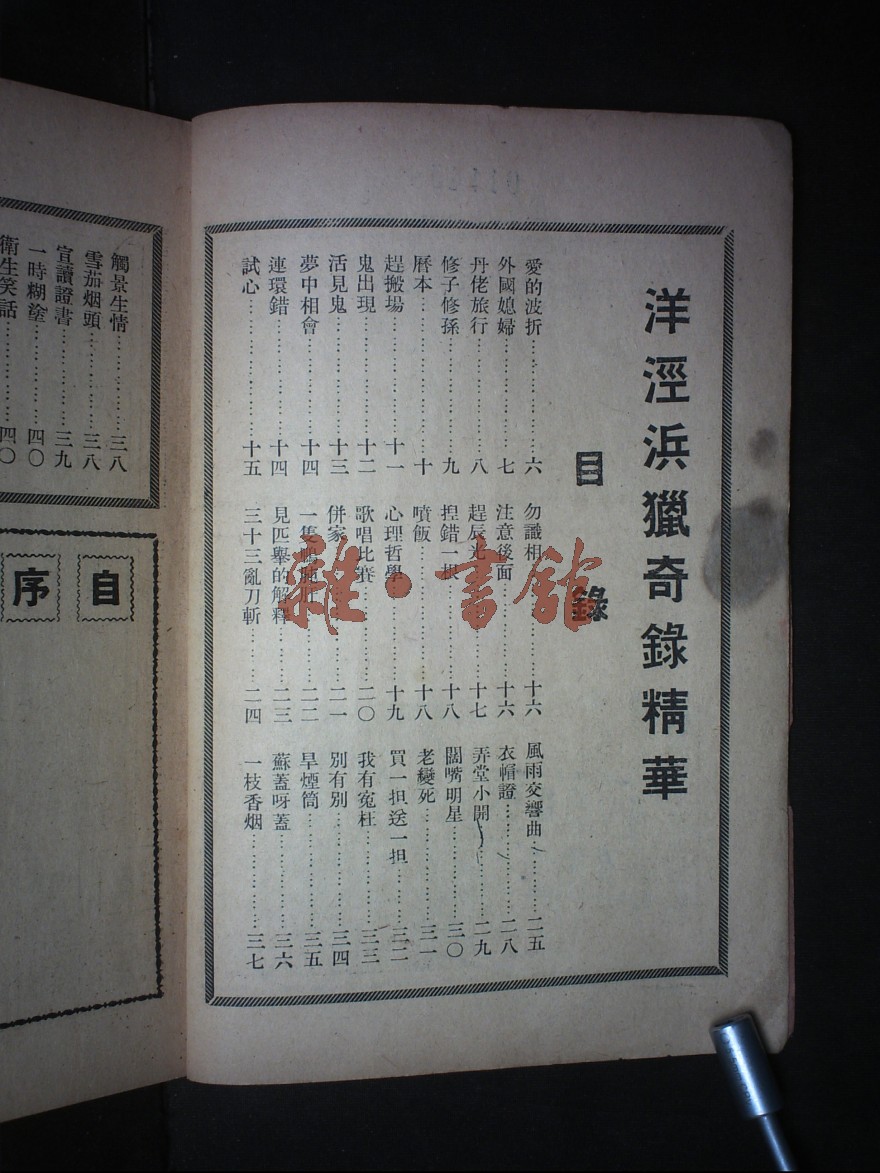 洋涇浜獵奇錄精華
目錄
愛的波折……六
外國媳婦……七
丹佬旅行……八
修子修孫……九
曆本……十
趕搬場……十一
鬼出現……十二
活見鬼……十三
夢中相會……十四
連環錯……十四
試心……十五
勿識相……十六
注意後面……十六
趕辰光……十七
揑錯一根……十八
噴飯……十八
心理哲學……十九
歌唱比賽……二〇
併家……二一
一隻……二二
見匹舉的解釋……二三
三十三亂刀斬……二四
風雨交響曲……二五
衣帽證……二八
弄堂小開……二九
闊嘴明星……三〇
老變死……三一
買一担送一担……三二
我有冤枉……三三
別有別……三四
旱煙筒……三五
蘇蓋呀蓋……三六
一枝香烟……三七
觸景生情……三八
雪茄烟頭……三八
宣讀證書……三九
一時糊塗……四〇
衛生笑話……四〇
自序
雜·書館